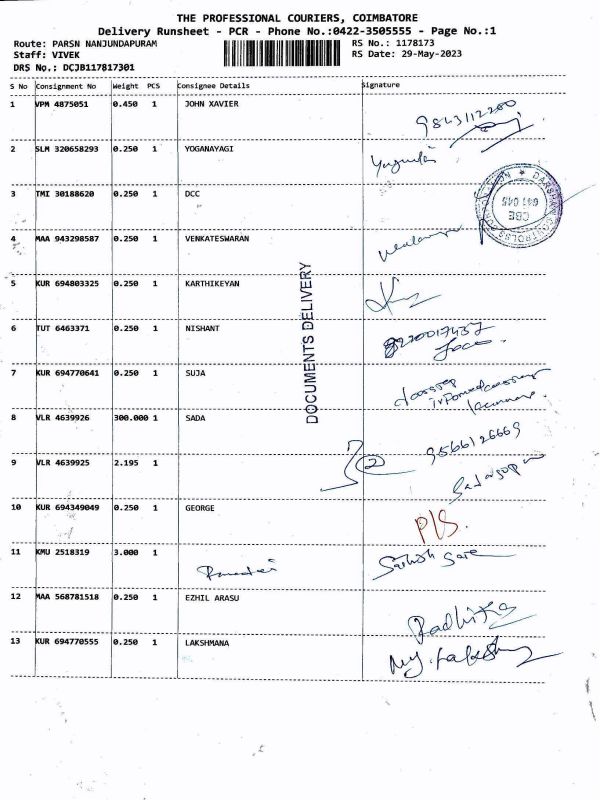 THE PROFESSIONAL COURIERS, COIMBATORE
Delivery Runsheet - PCR - Phone No.:0422-3505555 - Page No.:1
Route: PARSN NANJUNDAPURAM
RS No.: 1178173
Staff: VIVEK
RS Date: 29-May-2023
DRS No.: DCJB117817301
S No Consignment No Weight PCS Consignee Details Signature
1 VPM 4875051 0.450 1 JOHN XAVIER
9843112200
2 SLM 320658293 0.250 1 YOGANAYAGI
3 TMI 30188620 0.250 1 DCC
CBE
641 045
4 MAA 943298587 0.250 1 VENKATESWARAN
5 KUR 694803325 0.250 1 KARTHIKEYAN
DOCUMENTS DELIVERY
6 TUT 6463371 0.250 1 NISHANT
7 KUR 694770641 0.250 1 SUJA
8 VLR 4639926 300.000 1 SADA
9566126669
9 VLR 4639925 2.195 1
2
10 KUR 694349049 0.250 1 GEORGE
P/S.
11 KMU 2518319 3.000 1
12 MAA 568781518 0.250 1 EZHIL ARASU
Radhika
13 KUR 694770555 0.250 1 LAKSHMANA